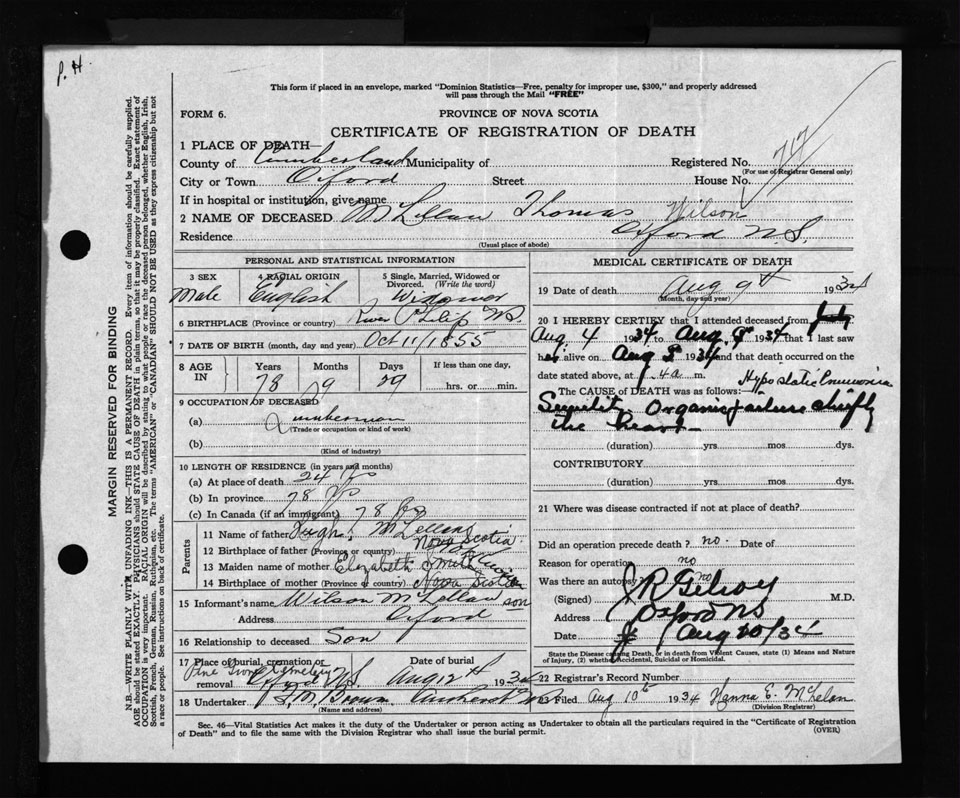 P. H.
This form if placed in an envelope, marked "Dominion Statistics—Free, penalty for improper use, $300," and properly addressed
will pass through the Mail "FREE"
FORM 6.
PROVINCE OF NOVA SCOTIA
CERTIFICATE OF REGISTRATION OF DEATH
1 PLACE OF DEATH—
County of Cumberland Municipality of
Registered No. 717
(For use of Registrar General only)
City or Town Oxford Street House No.
If in hospital or institution, give name
2 NAME OF DECEASED McLellan Thomas Wilson
Residence Oxford N.S.
(Usual place of abode)
PERSONAL AND STATISTICAL INFORMATION
3 SEX
Male
4 RACIAL ORIGIN
English
5 Single, Married, Widowed or
Divorced. (Write the word)
Widower
6 BIRTHPLACE (Province or country) River Philip NS
7 DATE OF BIRTH (month, day and year) Oct 11/1855
8 AGE IN
Years Months Days If less than one day,
78 9 29 hrs. or min.
9 OCCUPATION OF DECEASED
(a) Lumberman
(Trade or occupation or kind of work)
(b)
(Kind of industry)
10 LENGTH OF RESIDENCE (in years and months)
(a) At place of death 24 yrs
(b) In province 78 yrs
(c) In Canada (if an immigrant) 78 yrs
Parents
11 Name of father Hugh McLellan
12 Birthplace of father (Province or country) Nova Scotia
13 Maiden name of mother Elizabeth Smith
14 Birthplace of mother (Province or country) Nova Scotia
15 Informant's name Wilson McLellan son
Address Oxford
16 Relationship to deceased Son
17 Place of burial, cremation or Date of burial
Pine Grove Cemetery
removal Oxford NS Aug 12th 1934
18 Undertaker Brown Amherst NS
(Name and address)
MEDICAL CERTIFICATE OF DEATH
19 Date of death Aug 9th 1934
(Month, day and year)
20 I HEREBY CERTIFY that I attended deceased from
Aug. 4 1934 to Aug. 9 1934 that I last saw
h alive on Aug 1934 and that death occurred on the
date stated above, at 4 a m.
The CAUSE OF DEATH was as follows: Hypostatic Pneumonia
Senility. Organic failure chiefly
the heart
(duration) yrs mos dys.
CONTRIBUTORY
(duration) yrs mos. dys.
21 Where was disease contracted if not at place of death?
Did an operation precede death ? no. Date of
Reason for operation no
Was there an autopsy no
(Signed) J R Gilroy M.D.
Address Oxford NS
Date Aug 20/34
State the Disease causing Death, or in death from Violent Causes, state (1) Means and Nature
of Injury, (2) whether Accidental, Suicidal or Homicidal.
22 Registrar's Record Number
23 Filed Aug 10th 1934 Hanna E. McLelan
(Division Registrar)
Sec. 46—Vital Statistics Act makes it the duty of the Undertaker or person acting as Undertaker to obtain all the particulars required in the "Certificate of Registration
of Death" and to file the same with the Division Registrar who shall issue the burial permit. (OVER)
MARGIN RESERVED FOR BINDING
N.B.—WRITE PLAINLY WITH UNFADING INK—THIS IS A PERMANENT RECORD. Every item of information should be carefully supplied.
AGE should be stated EXACTLY. PHYSICIANS should STATE CAUSE OF DEATH in plain terms, so that it may be properly classified. Exact statement of
OCCUPATION is very important. RACIAL ORIGIN will be described by stating to what people or race the deceased person belonged, whether English, Irish,
Scottish, French, German, Russian, Ruthenian, etc. The terms "AMERICAN" or "CANADIAN" SHOULD NOT BE USED as they express citizenship but not
a race or people. See instructions on back of certificate.